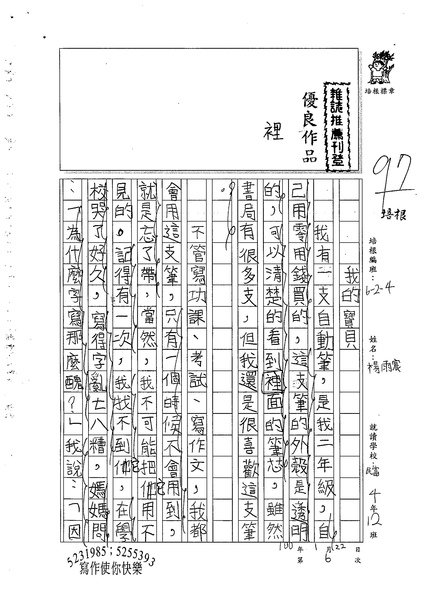 雜誌推薦刊登
優良作品
裡
培根標章
97
培根
培根編班：6-2-4
姓名：楊雨宸
就讀學校
4年12班
我的寶貝
我有一支自動筆，是我二年級，自
己用零用錢買的，這支筆的外殼是透明
的，可以清楚的看到裡面的筆芯，雖然
書局有很多支，但我還是很喜歡這支筆
。
不管寫功課、考試、寫作文，我都
會用這支筆，只有一個時候不會用到，
就是忘了帶，當然，我不可能把他用不
見的。記得有一次，我找不到他，在學
校哭了好久，寫得字亂七八糟，媽媽問
：「為什麼字寫那麼醜？」我說：「因
100年1月22日
第6次
5231985；5255393
寫作使你快樂